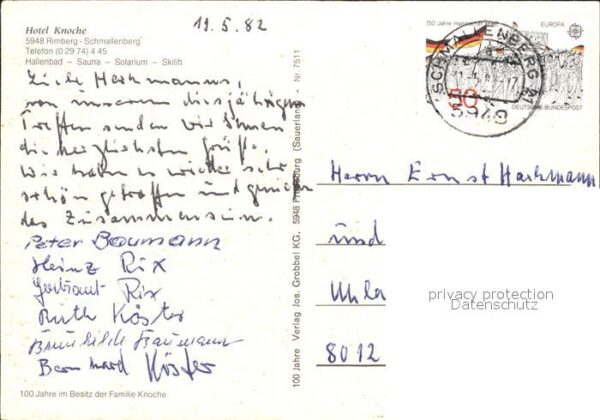 19.5.82
Hotel Knoche
5948 Rimberg - Schmallenberg
Telefon (0 29 74) 4 45
Hallenbad – Sauna – Solarium – Skilift
Liebe Harkmanns,
von unserem diesjährigen
Treffen senden wir Ihnen
die herzlichsten Grüße.
Wir haben es wieder sehr
schön getroffen und genießen
das Zusammensein.
Peter Baumann
Heinz Rix
Gertraut Rix
Ruth Köster
Brunhilde Baumann
Bernhard Köster
100 Jahre im Besitz der Familie Knoche
100 Jahre Verlag Jos. Grobbel KG, 5948 Fredeburg (Sauerland) - Nr. 7511
150 Jahre Hambacher Fest
EUROPA
50
DEUTSCHE BUNDESPOST
SCHMALLENBERG
5948
Herrn Ernst Harkmann
und
Uhla
8012
privacy protection
Datenschutz